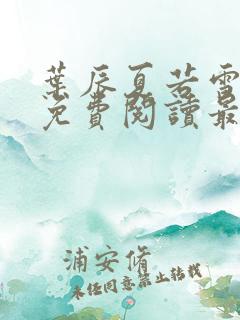 葉辰夏若雪
免費閱讀最
浦安脩
未經同意禁止轉載